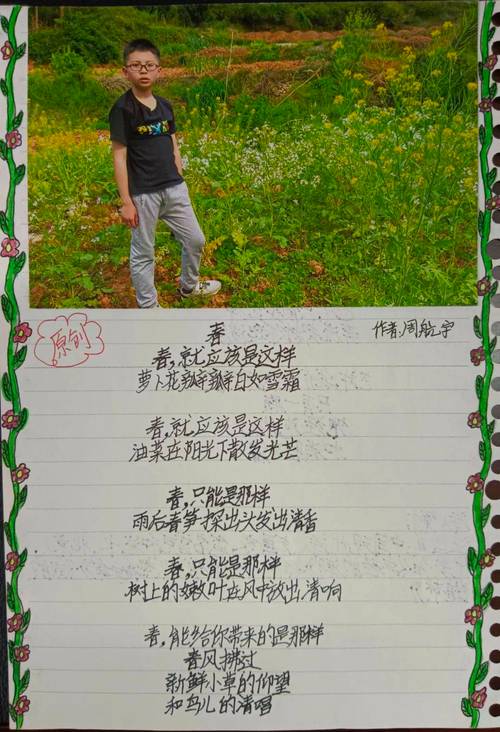 春
作者:周航宇
原创
春,就应该是这样
萝卜花瓣瓣白如雪霜
春,就应该是这样
油菜在阳光下散发光芒
春,只能是那样
雨后春笋探出头发出清香
春,只能是那样
树上的嫩叶在风中放出清响
春,能给你带来的是那样
春风拂过
新鲜小草的仰望
和鸟儿的清唱